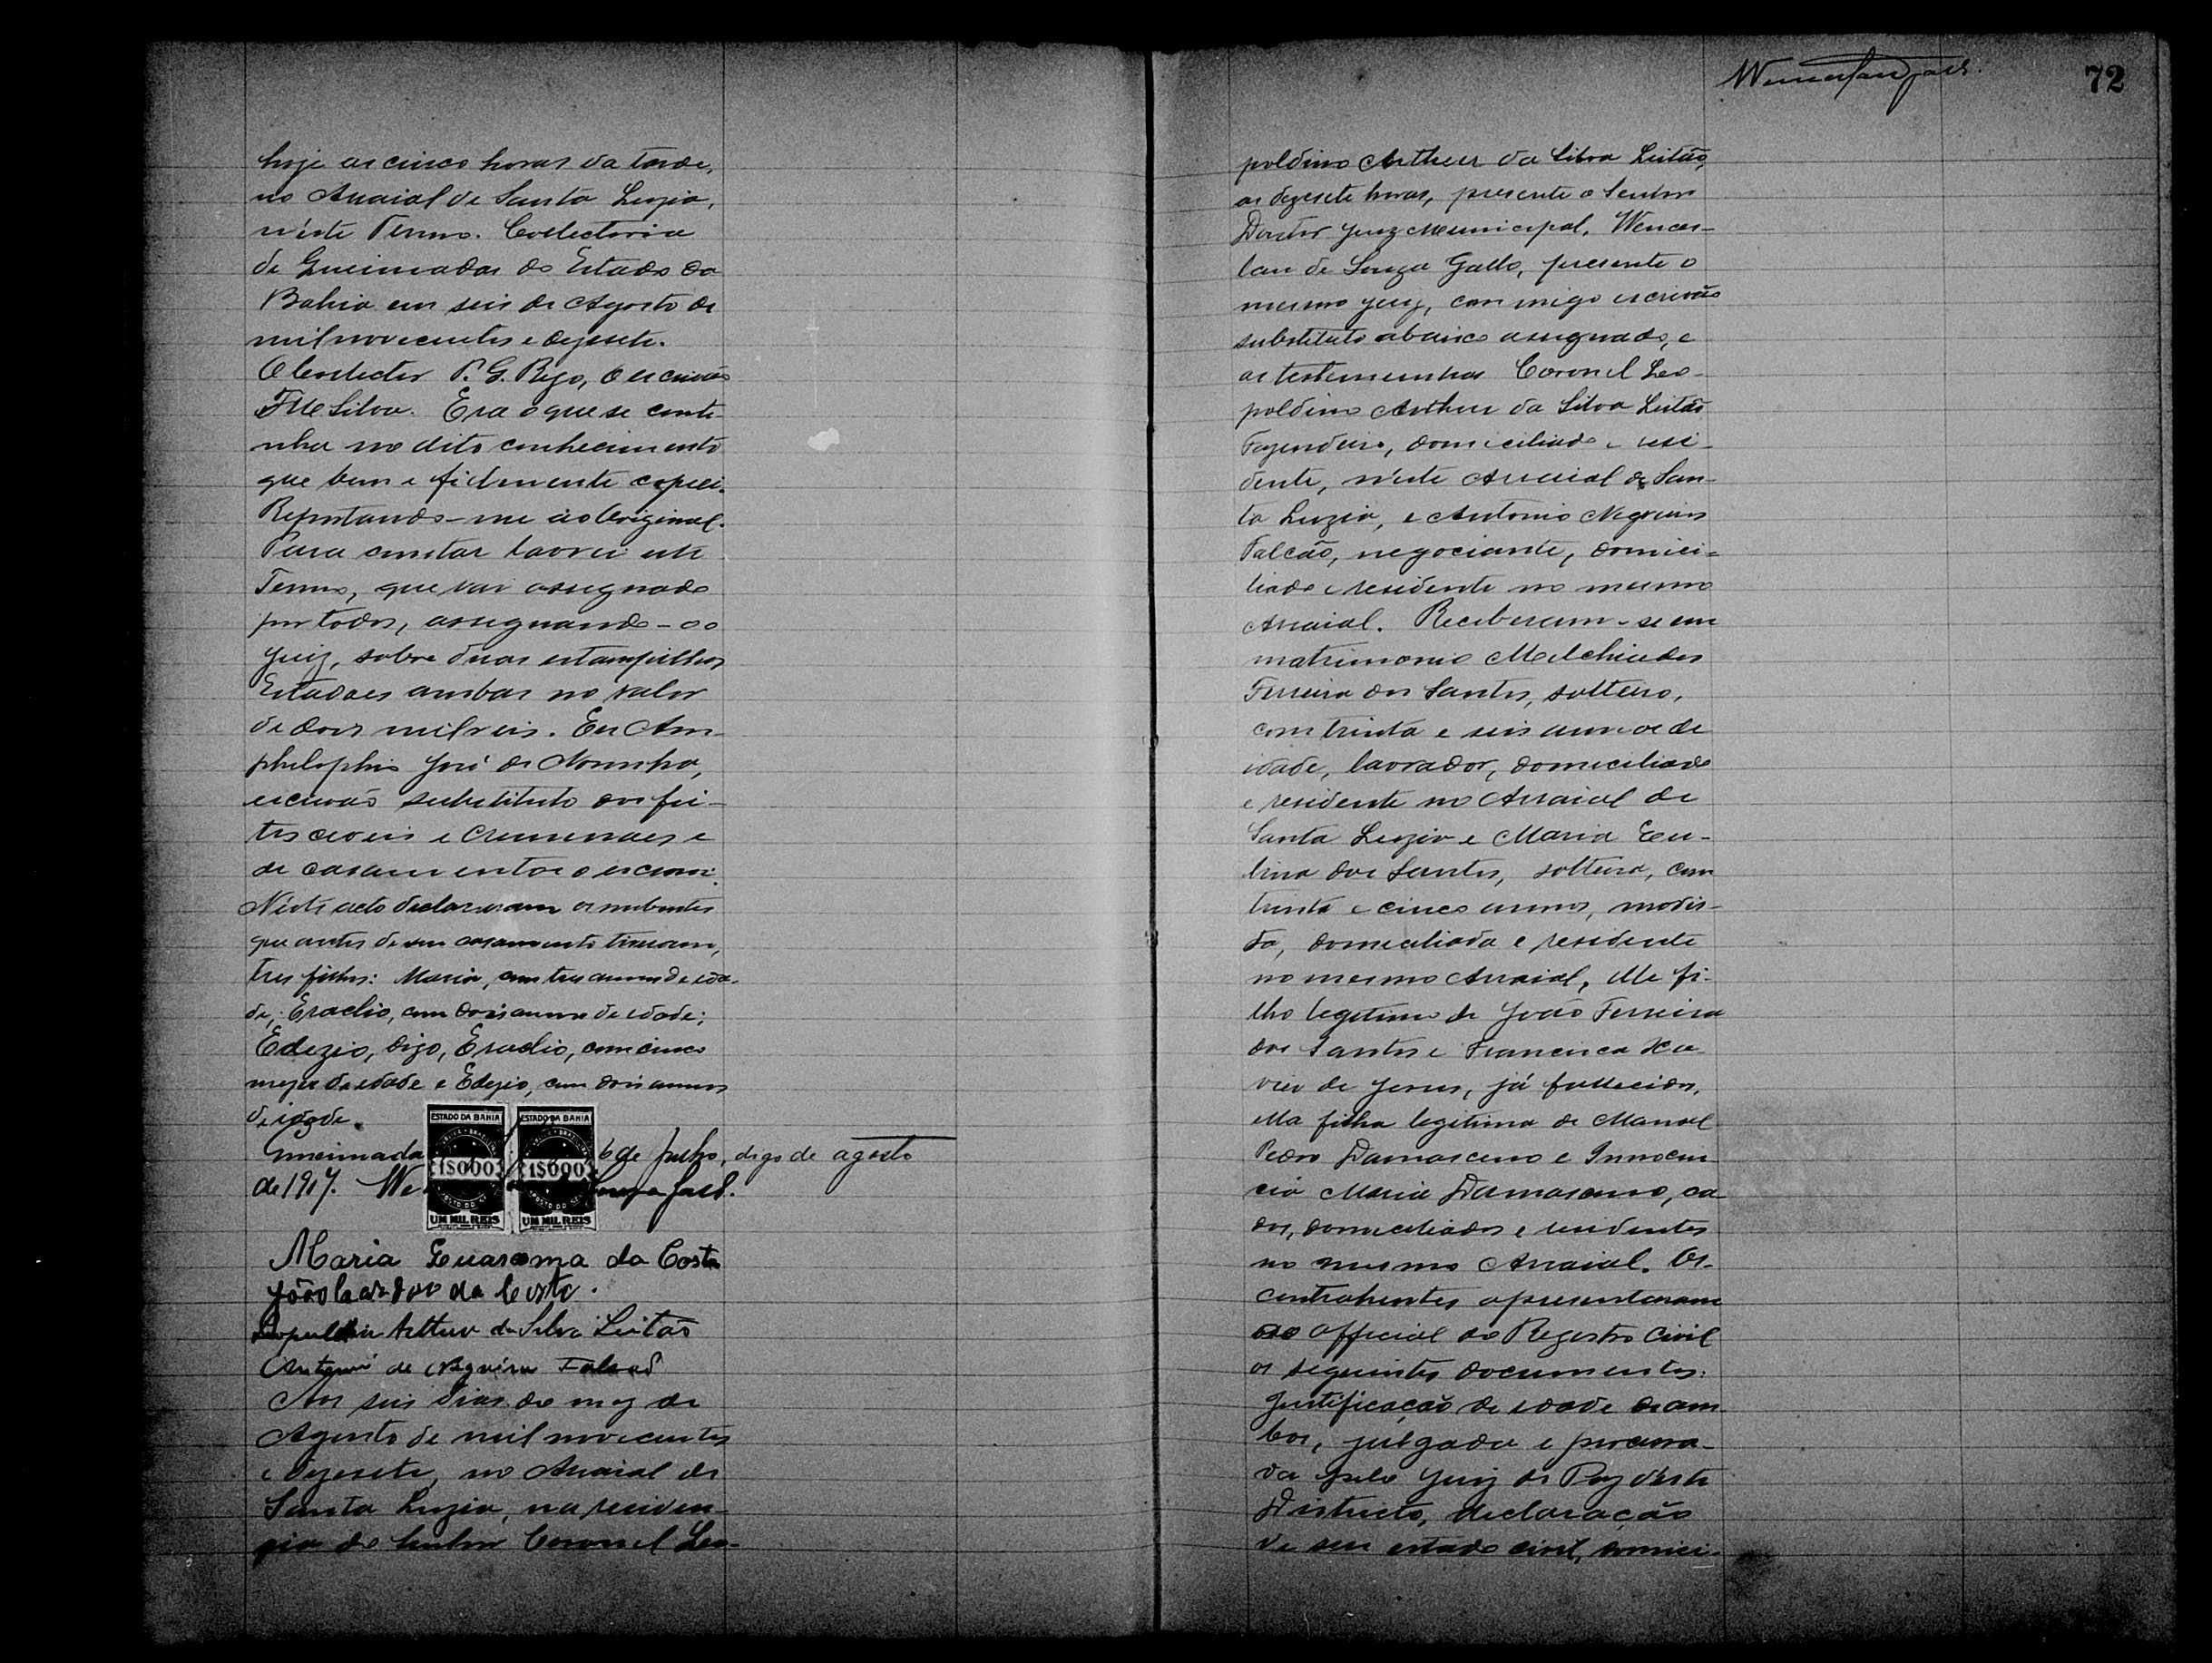 hoje as cinco horas da tarde,
no Arraial de Santa Luzia,
n'éste Termo. Collectoria
de Queimadas do Estado da
Bahia em seis de Agosto de
mil novecentos e dezesete.
O Collector P. G. Rego, O escrivão
F M Silva. Era o que se conti-
nha no dito conhecimento
que bem e fielmente copiei.
Reportando-me ao Original.
Para constar lavrei este
Termo, que vai assignado
por todos, assignando-o o
Juiz, sobre duas estampilhas
Estadoaes ambas no valor
de dois mil reis. Eu Am-
philophio José de Noronha,
escrivão substituto dos fei-
tos civeis e criminaes e
de casamentos o escrevi.
N'éste acto declararam os nubentes
que antes de seu casamento tiveram,
tres filhos: Maria, com tres annos de ida-
de; Eraclio, com dois annos de idade;
Edezio, digo, Eraclio, com cinco
mezes de idade e Edezio, com dois annos
de idade.
ESTADO DA BAHIA ESTADO DA BAHIA
Queimadas 6 de Julho, digo de agosto
1$000 1$000
de 1917. We Souza Gall.
UM MIL REIS UM MIL REIS
Maria da Costa
João Cardoso da Costa.
Leopoldino Arthur da Silva Leitão
Antonio de Negreiros Falcão
Aos seis dias do mez de
Agosto de mil novecentos
e dezesete, no Arraial de
Santa Luzia, na residen-
cia do Senhor Coronel Leo-
72
poldino Arthur da Silva Leitão,
as dezesete horas, presente o Senhor
Doutor Juiz Municipal, Wences-
lau de Souza Gallo, presente o
mesmo juiz, com migo escrivão
substituto abaixo assignado, e
as testemunhas Coronel Leo-
poldino Arthur da Silva Leitão
Fazendeiro, domiciliado e resi-
dente, n'éste Arraial de San-
ta Luzia, e Antonio Negreiros
Falcão, negociante, domici-
liado e residente no mesmo
Arraial. Receberam-se em
matrimonio Melchiades
Ferreira dos Santos, solteiro,
com trinta e seis annos de
idade, lavrador, domiciliado
e residente no Arraial de
Santa Luzia e Maria Eu-
lina dos Santos, solteira, com
trinta e cinco annos, modis-
ta, domiciliada e residente
no mesmo Arraial, Elle fi-
lho legitimo de João Ferreira
dos Santos e Francisca Xa-
vier de Jesus, já fallecidos,
Ella filha legitima de Manoel
Pedro Damasceno e Innocen
cia Maria Damasceno, ca
dos, domiciliados e residentes
no mesmo Arraial. Os
contrahentes apresentaram
ao official do Registro Civil
os seguintes documentos:
Justificação de idade de am
bos, julgada e
da pelo Juiz de Paz d'éste
Districto, declaração
de seu estado civil, domici-